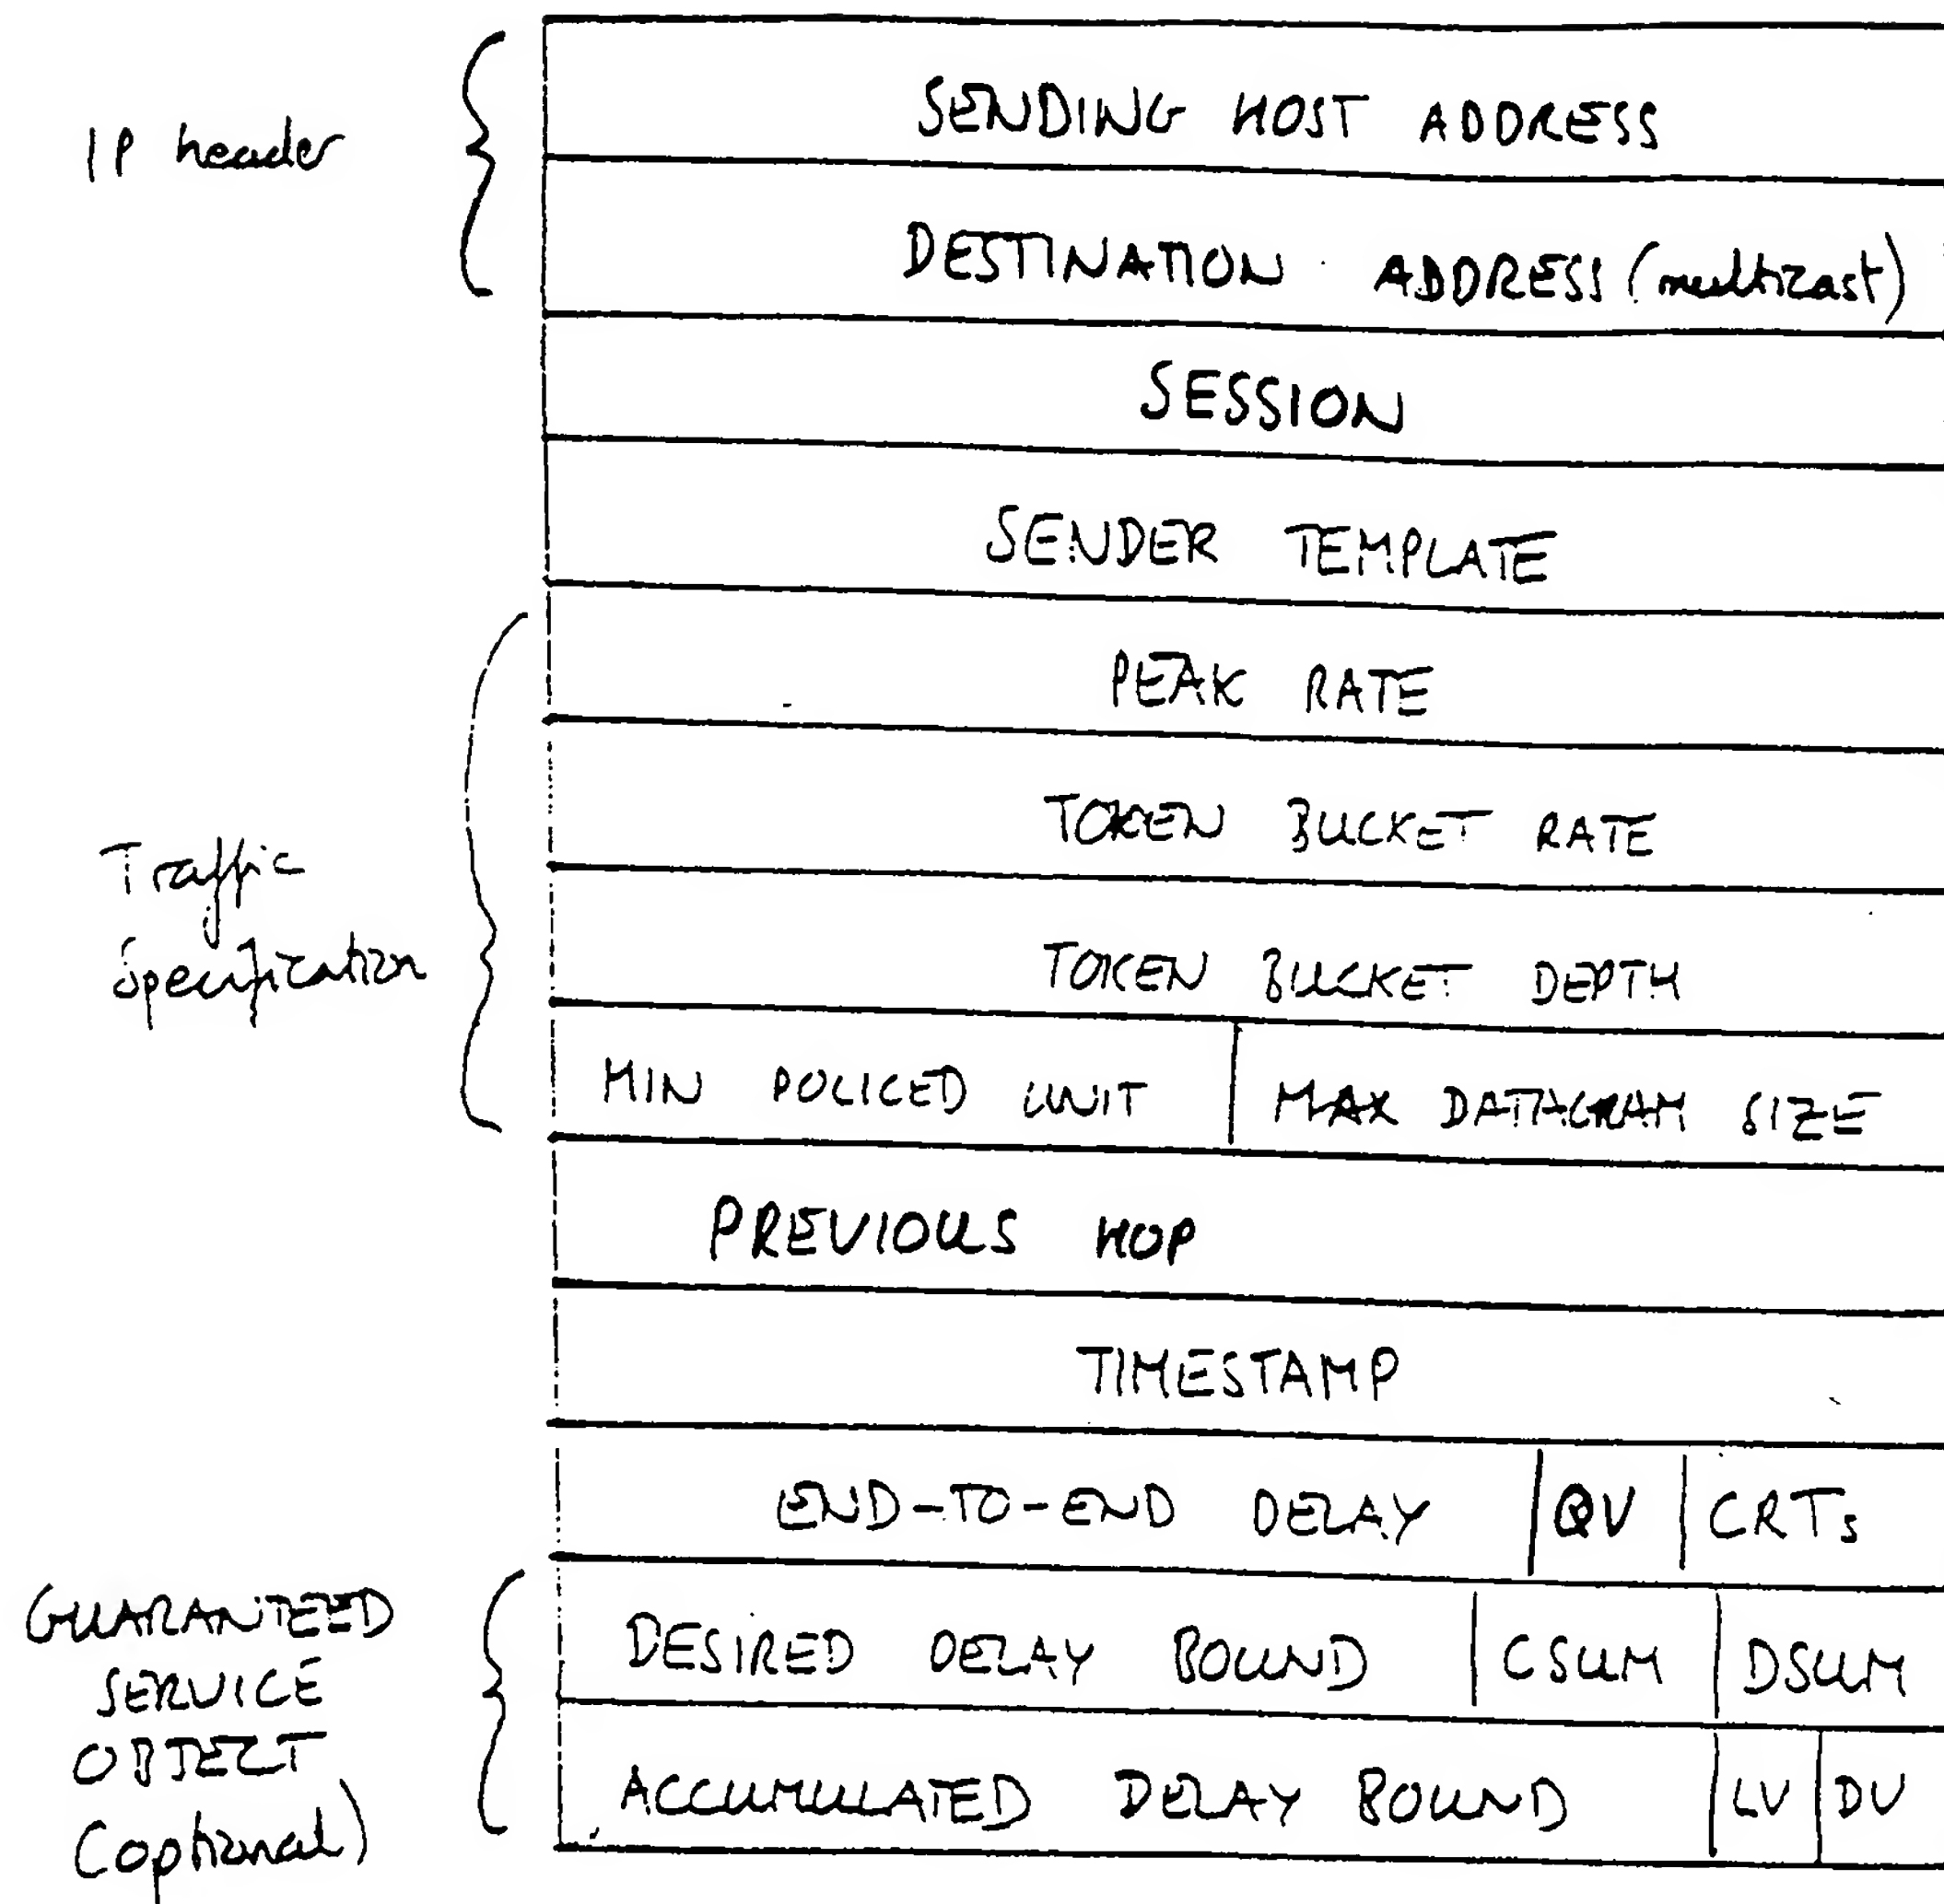 SENDING HOST ADDRESS
IP header
DESTINATION ADDRESS (multicast)
SESSION
SENDER TEMPLATE
PEAK RATE
TOKEN BUCKET RATE
Traffic
Specification
TOKEN BUCKET DEPTH
MIN POLICED UNIT MAX DATAGRAM SIZE
PREVIOUS HOP
TIMESTAMP
END-TO-END DELAY QV CRTs
GUARANTEED
SERVICE
OBJECT
(optional)
DESIRED DELAY BOUND CSUM DSUM
ACCUMULATED DELAY BOUND LV DV